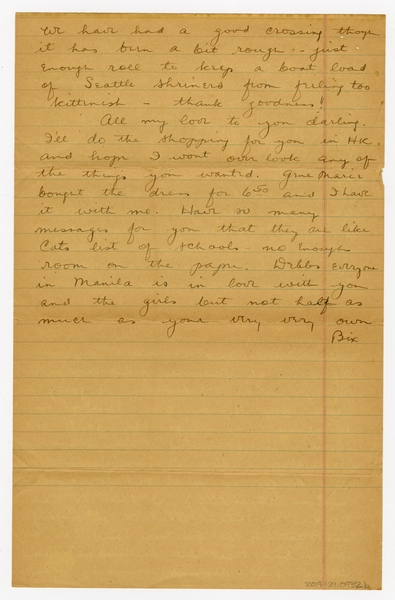 We have had a good crossing though
it has been a bit rough - just
enough roll to keep a boat load
of Seattle Shriners from feeling too
kittenish - thank goodness!
All my love to you darling.
I'll do the shopping for you in HK
and hope I wont over look any of
the things you wanted. Marie
bought the dress for 6.50 and I have
it with me. Have so many
messages for you that they are like
Cats list of schools - no enough
room on the paper. Debbs everyone
in Manila is in love with you
and the girls but not half as
much as your very very own
Bix